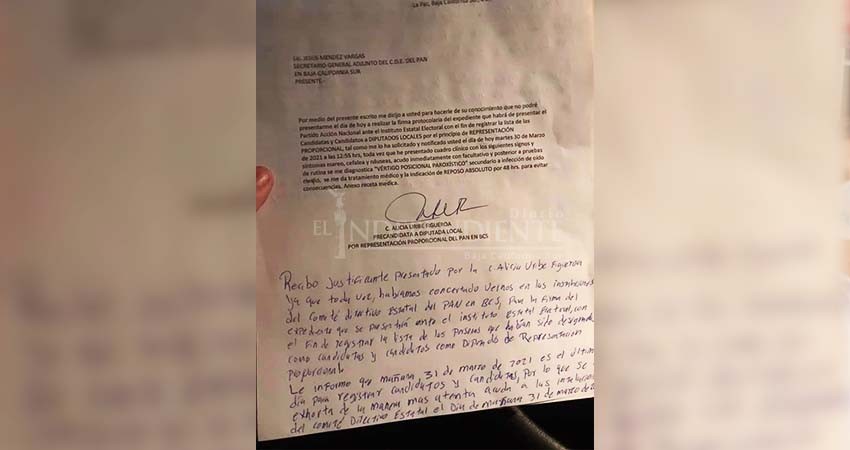 La Paz, Baja California Sur,
Lic. JESUS MENDEZ VARGAS
SECRETARIO GENERAL ADJUNTO DEL C.D.E. DEL PAN
EN BAJA CALIFORNIA SUR
PRESENTE.-
Por medio del presente escrito me dirijo a usted para hacerle de su conocimiento que no podré
presentarme el día de hoy a realizar la firma protocolaria del expediente que habrá de presentar el
Partido Acción Nacional ante el Instituto Estatal Electoral con el fin de registrar la lista de las
Candidatas y Candidatos a DIPUTADOS LOCALES por el principio de REPRESENTACIÓN
PROPORCIONAL, tal como me lo ha solicitado y notificado usted el día de hoy martes 30 de Marzo
de 2021 a las 12:55 hrs, toda vez que he presentado cuadro clínico con los siguientes signos y
síntomas mareo, cefalea y náuseas, acudo inmediatamente con facultativo y posterior a pruebas
de rutina se me diagnostica "VÉRTIGO POSICIONAL PAROXÍSTICO" secundario a infección de oído
se me da tratamiento médico y la indicación de REPOSO ABSOLUTO por 48 hrs. para evitar
consecuencias. Anexo receta medica.
C. ALICIA URIBE FIGUEROA
PRECANDIDATA A DIPUTADA LOCAL
POR REPRESENTACIÓN PROPORCIONAL DEL PAN EN BCS
Diario
EL INDEPENDIENTE
Baja
Recibo justificante presentado por la C. Alicia Uribe Figueroa
ya que toda vez, habiamos concertado vernos en las instalaciones
del Comité directivo Estatal del PAN en BCS, para la Firma del
expediente que se presentará ante el instituto Estatal Electoral, con
el Fin de registrar la lista de las personas que habían sido designadas
como candidatas y candidatos como Diputados de Representación
proporcional
Le informo que mañana, 31 de marzo de 2021 es el último
día para registrar candidatos y candidatas, Por lo que se
exhorta de la manera mas atenta acuda a las instalaciones
del Comité Directivo Estatal el Día de mañana 31 de marzo de